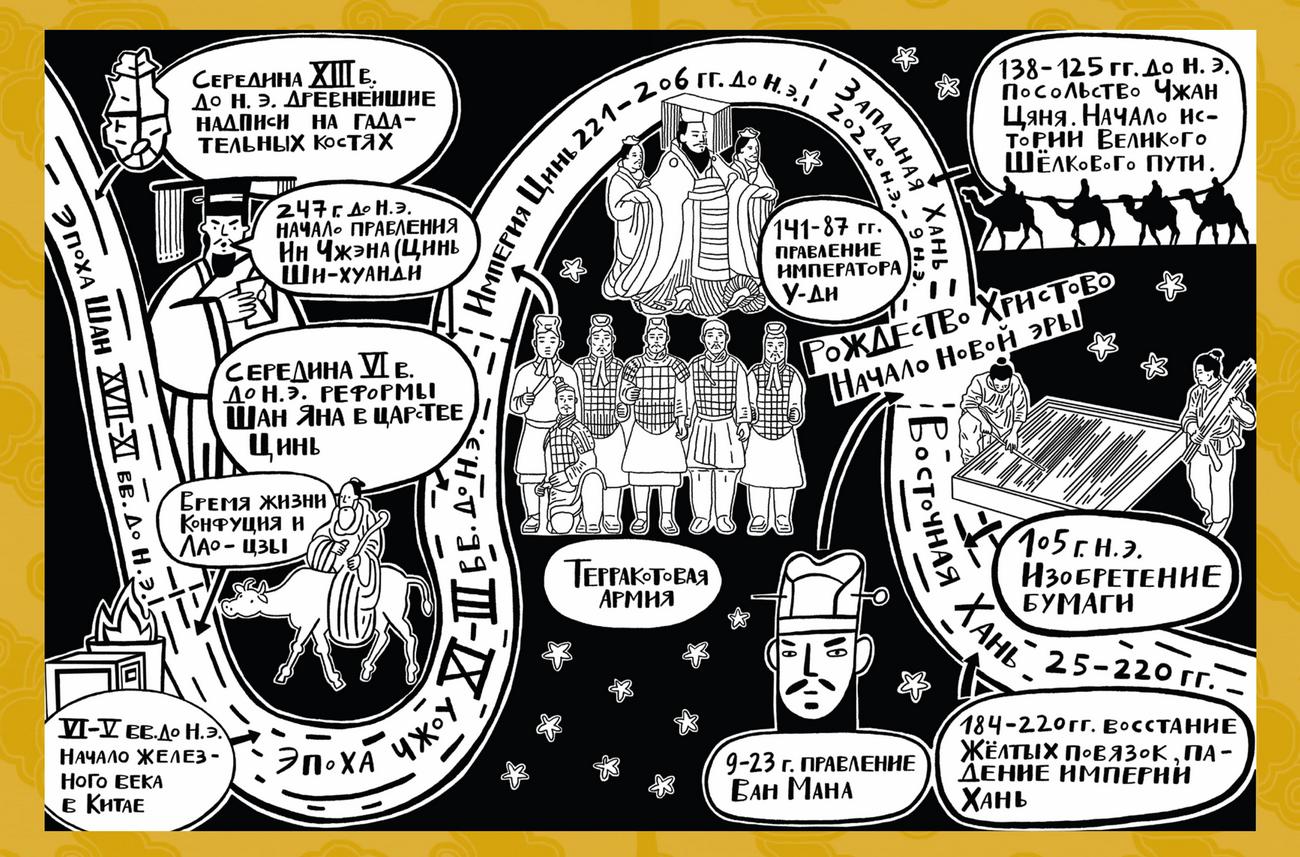 Середина XIII в.
до н. э. Древнейшие
надписи на гада-
тельных костях
Эпоха Шан XVII-XI вв. до н.э.
247 г. до н.э.
начало правления
Ин Чжэна (Цинь
Ши-хуанди
Середина VI в.
до н.э. реформы
Шан Яна в царстве
Цинь
Время жизни
Конфуция и
Лао-цзы
VI-V вв. до н.э.
Начало желез-
ного века
в Китае
Эпоха Чжоу XI-III вв. до н.э.
Империя Цинь 221-206 гг. до н.э.
Терракотовая
армия
Западная Хань
202 до н.э. - 9 н.э.
138-125 гг. до н. э.
посольство Чжан
Цяня. Начало ис-
тории Великого
Шёлкового пути.
141-87 гг.
правление
императора
У-ди
Рождество Христово
Начало новой эры
9-23 г. правление
Ван Мана
Восточная Хань 25-220 гг.
105 г. н.э.
Изобретение
бумаги
184-220 гг. восстание
Жёлтых повязок, па-
дение империи
Хань